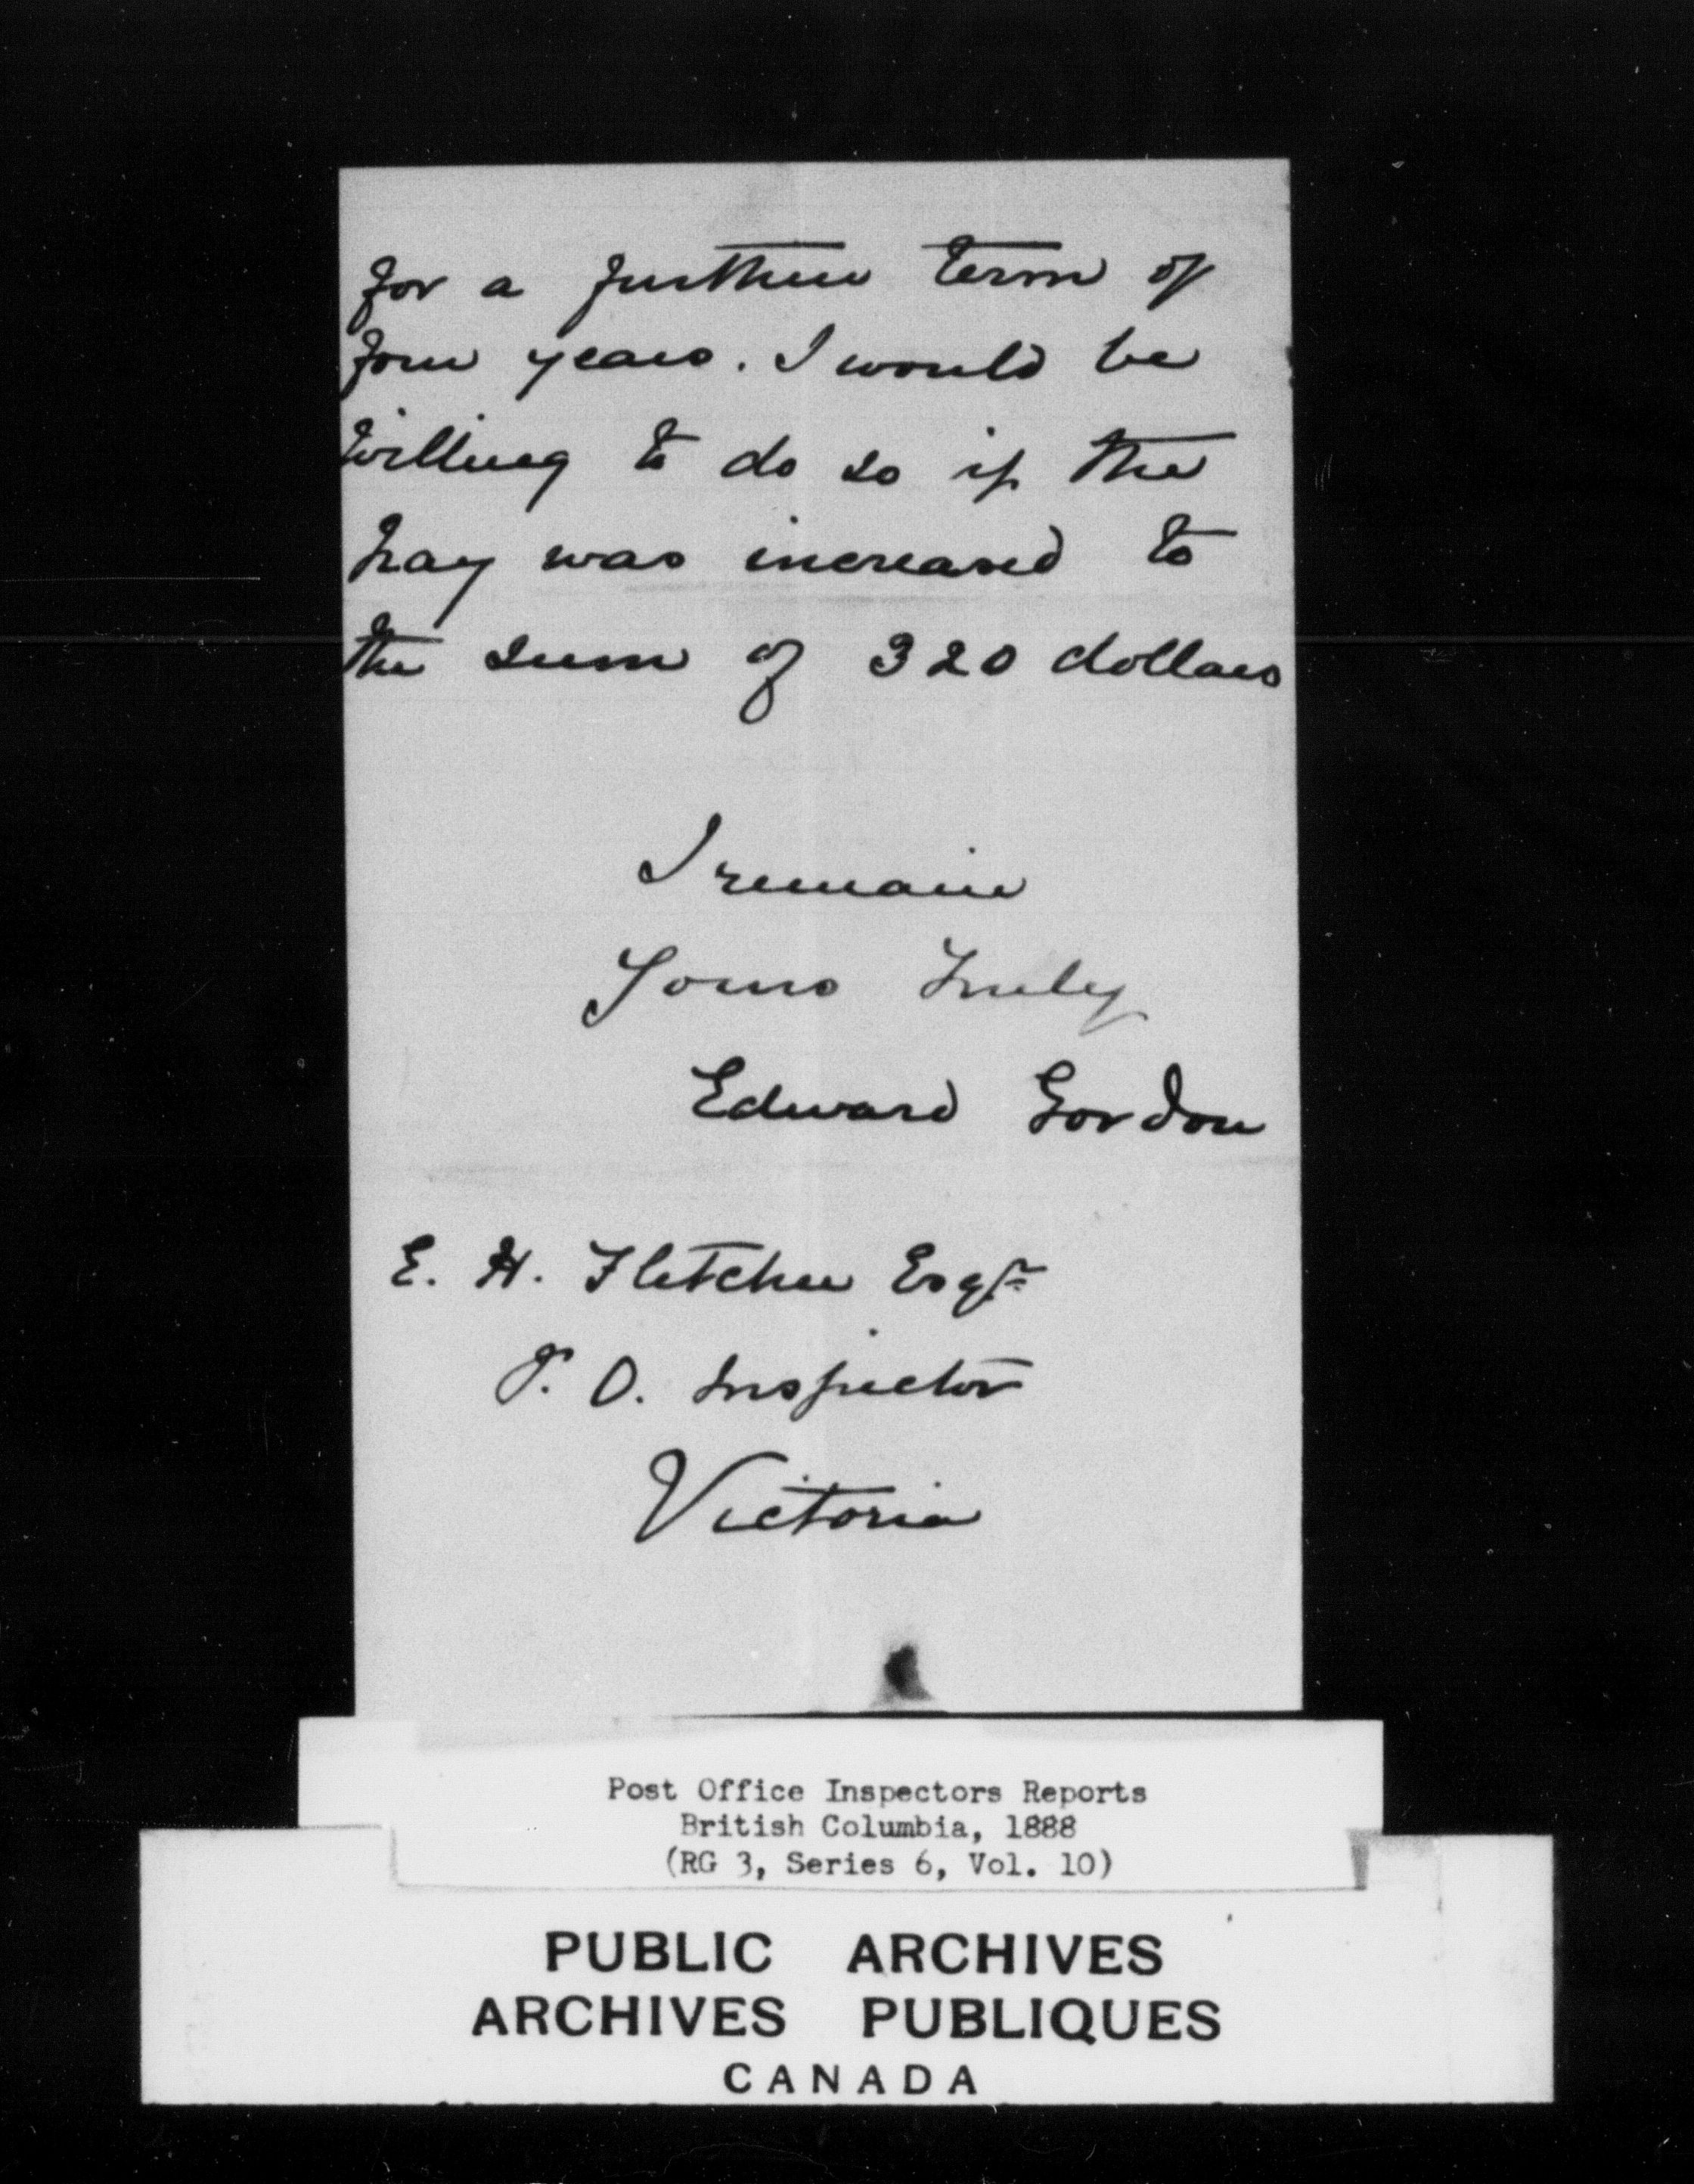 for a further term of
four years. I would be
willing to do so if the
pay was increased to
the sum of 320 dollars
I remain
Yours Truly
Edward Gordon
E. H. Fletcher Esqr
P. O. Inspector
Victoria
Post Office Inspectors Reports
British Columbia, 1888
(RG 3, Series 6, Vol. 10)
PUBLIC ARCHIVES
ARCHIVES PUBLIQUES
CANADA